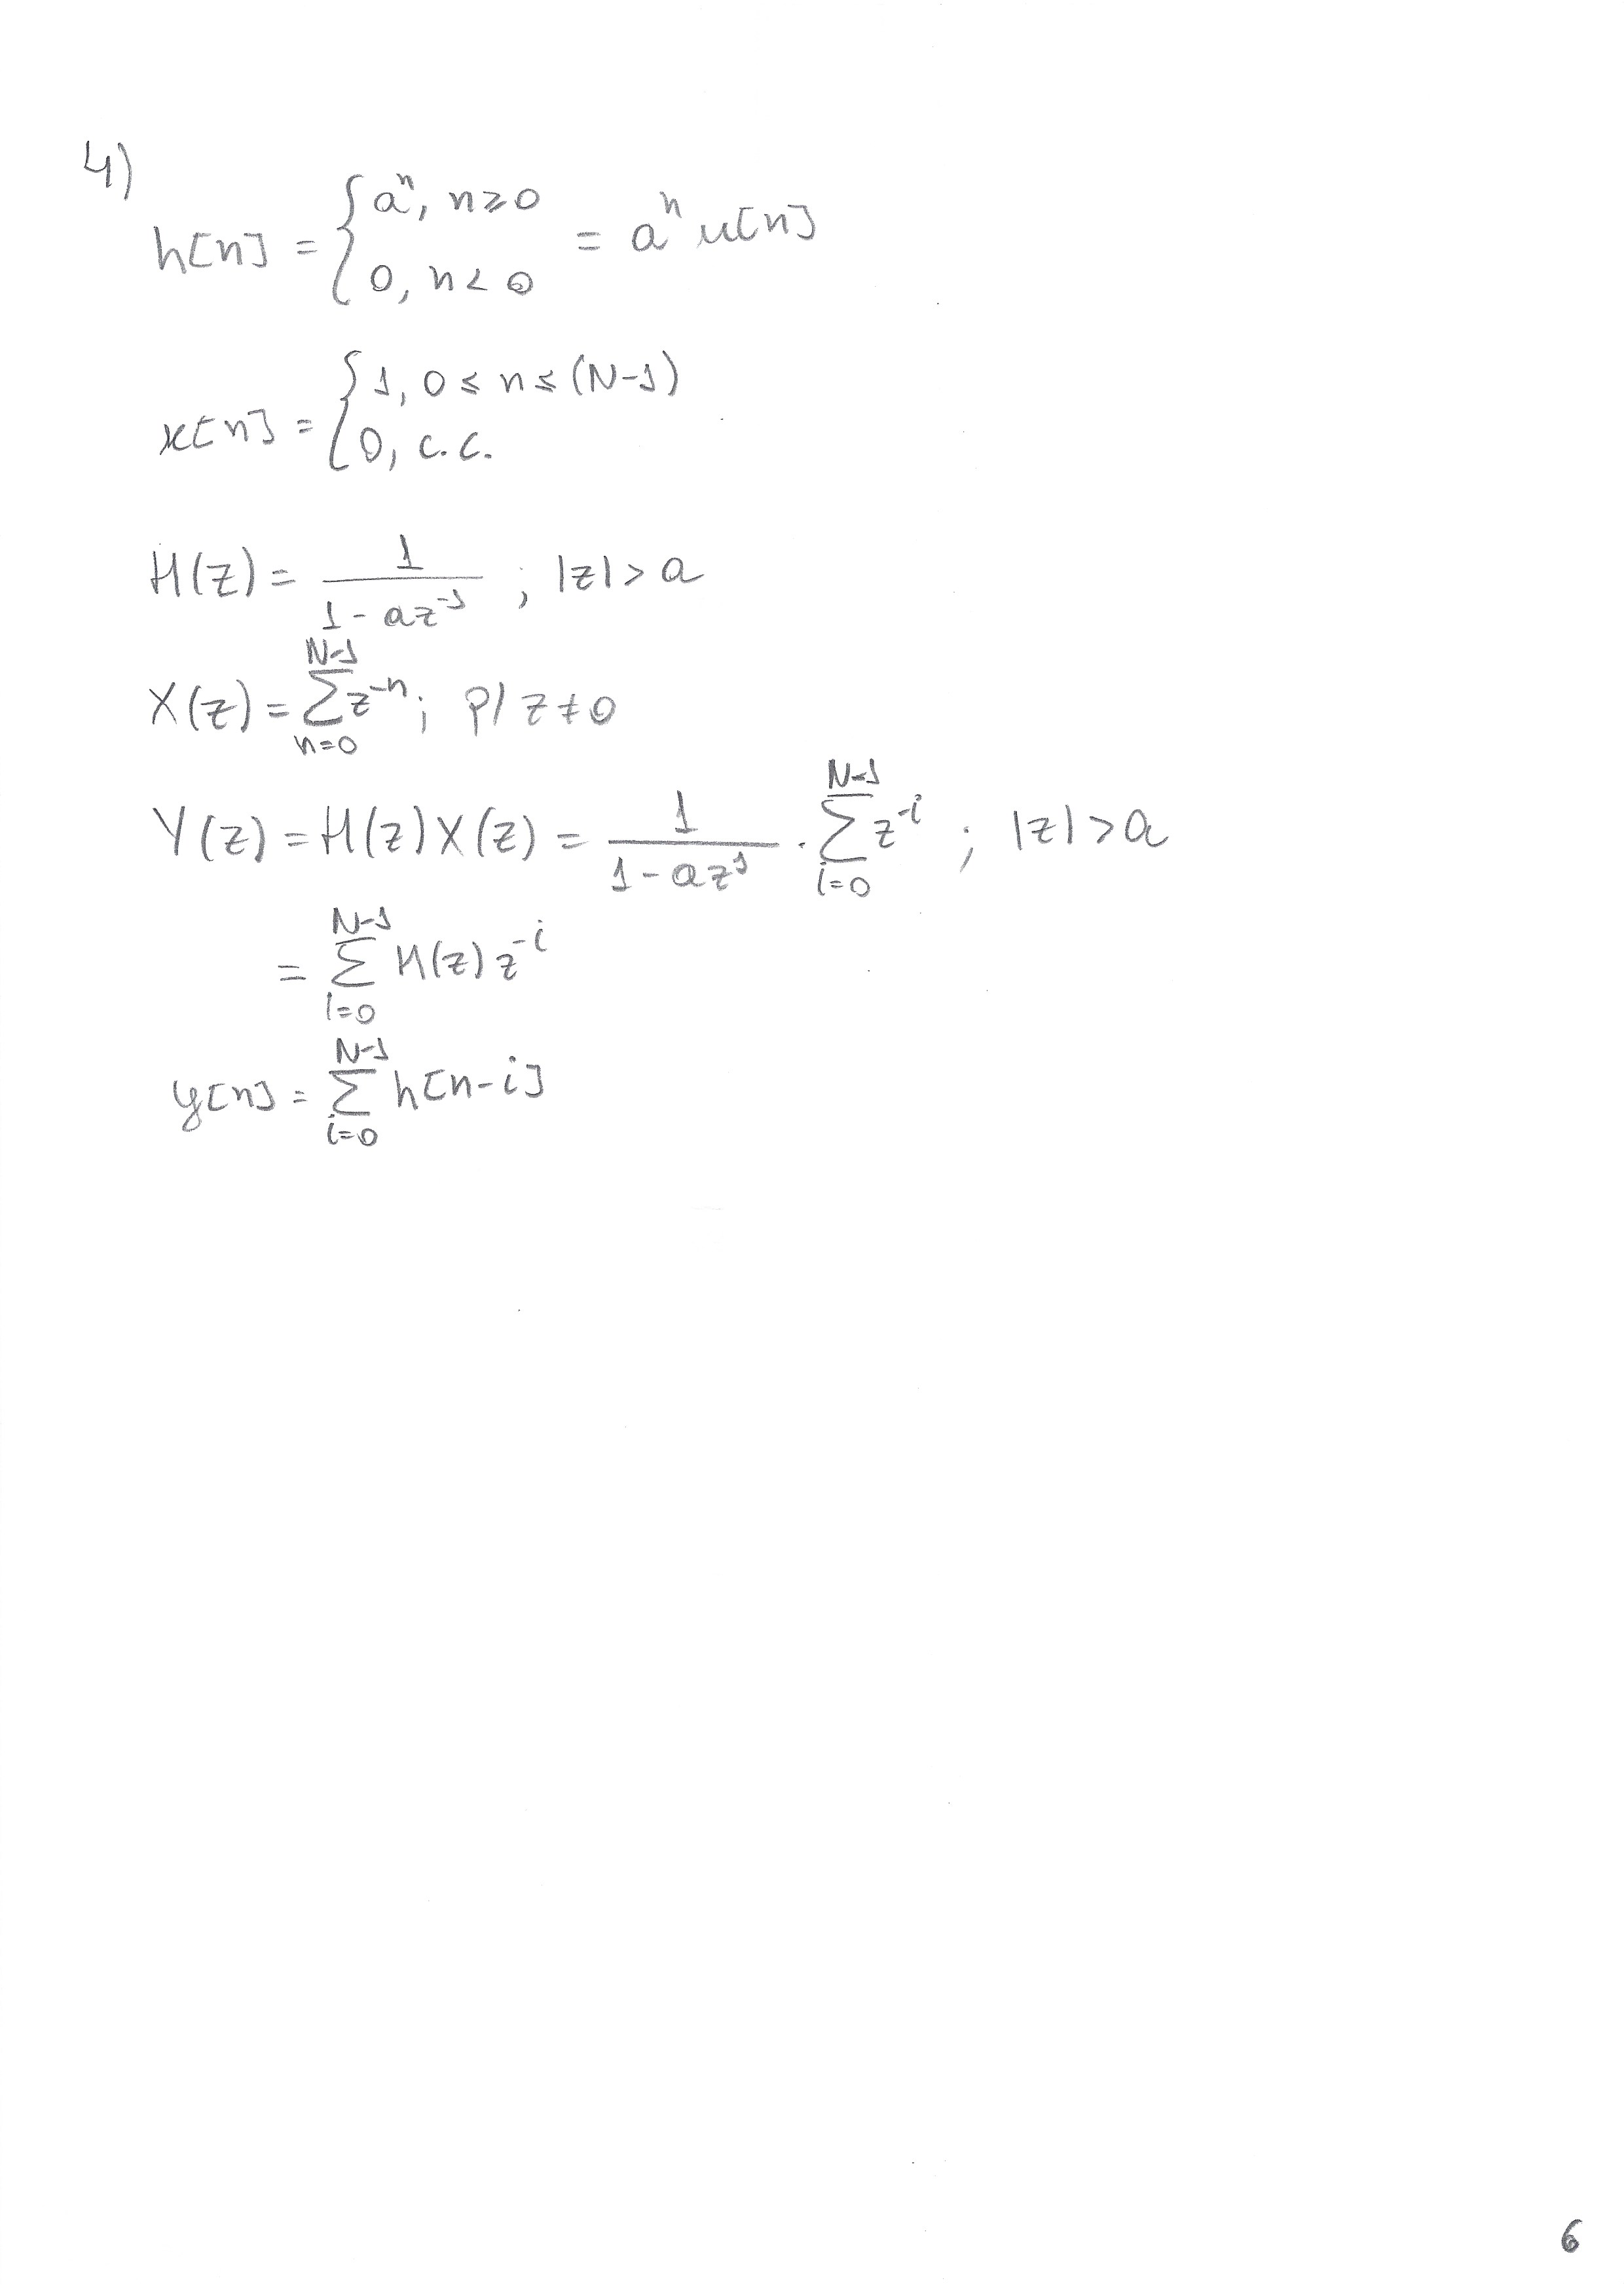 4)
h[n] = { aⁿ, n≥0
0, n<0 = aⁿ u[n]
x[n] = { 1, 0 ≤ n ≤ (N-1)
0, c.c.
H(z) = 1 / (1 - az⁻¹) ; |z| > a
X(z) = Σ_{n=0}^{N-1} z⁻ⁿ ; p/ z ≠ 0
Y(z) = H(z) X(z) = 1 / (1 - az¹) · Σ_{i=0}^{N-1} z⁻ⁱ ; |z| > a
= Σ_{i=0}^{N-1} H(z) z⁻ⁱ
y[n] = Σ_{i=0}^{N-1} h[n-i]
6